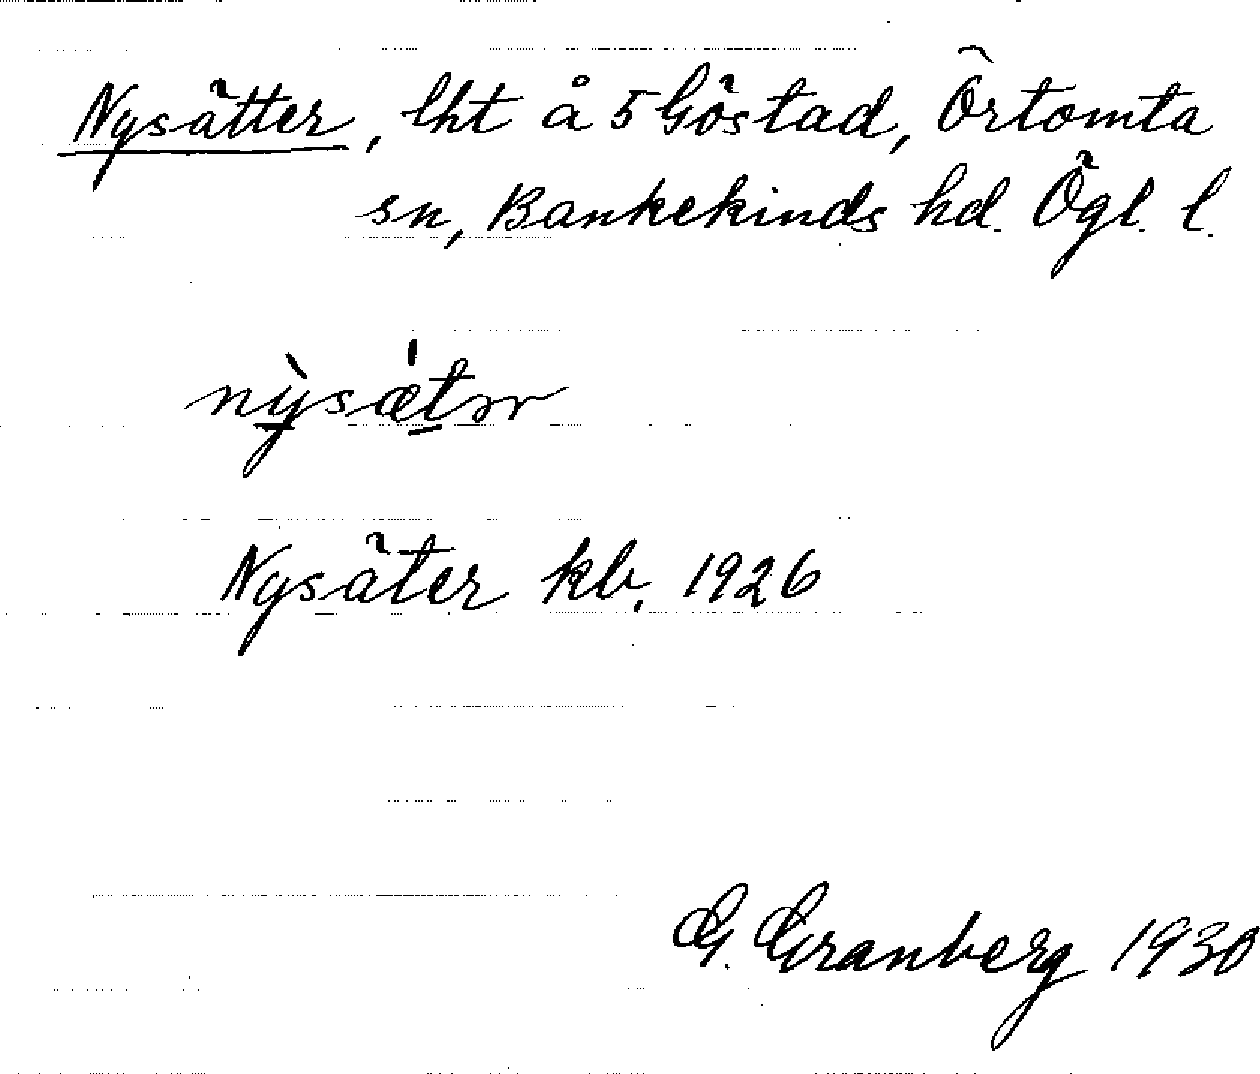 Nysätter, lht å 5 Göstad, Örtomta
sn, Bankekinds hd. Ögl. l.
nỳsǽtər
Nysäter kb. 1926
G. Granberg 1930